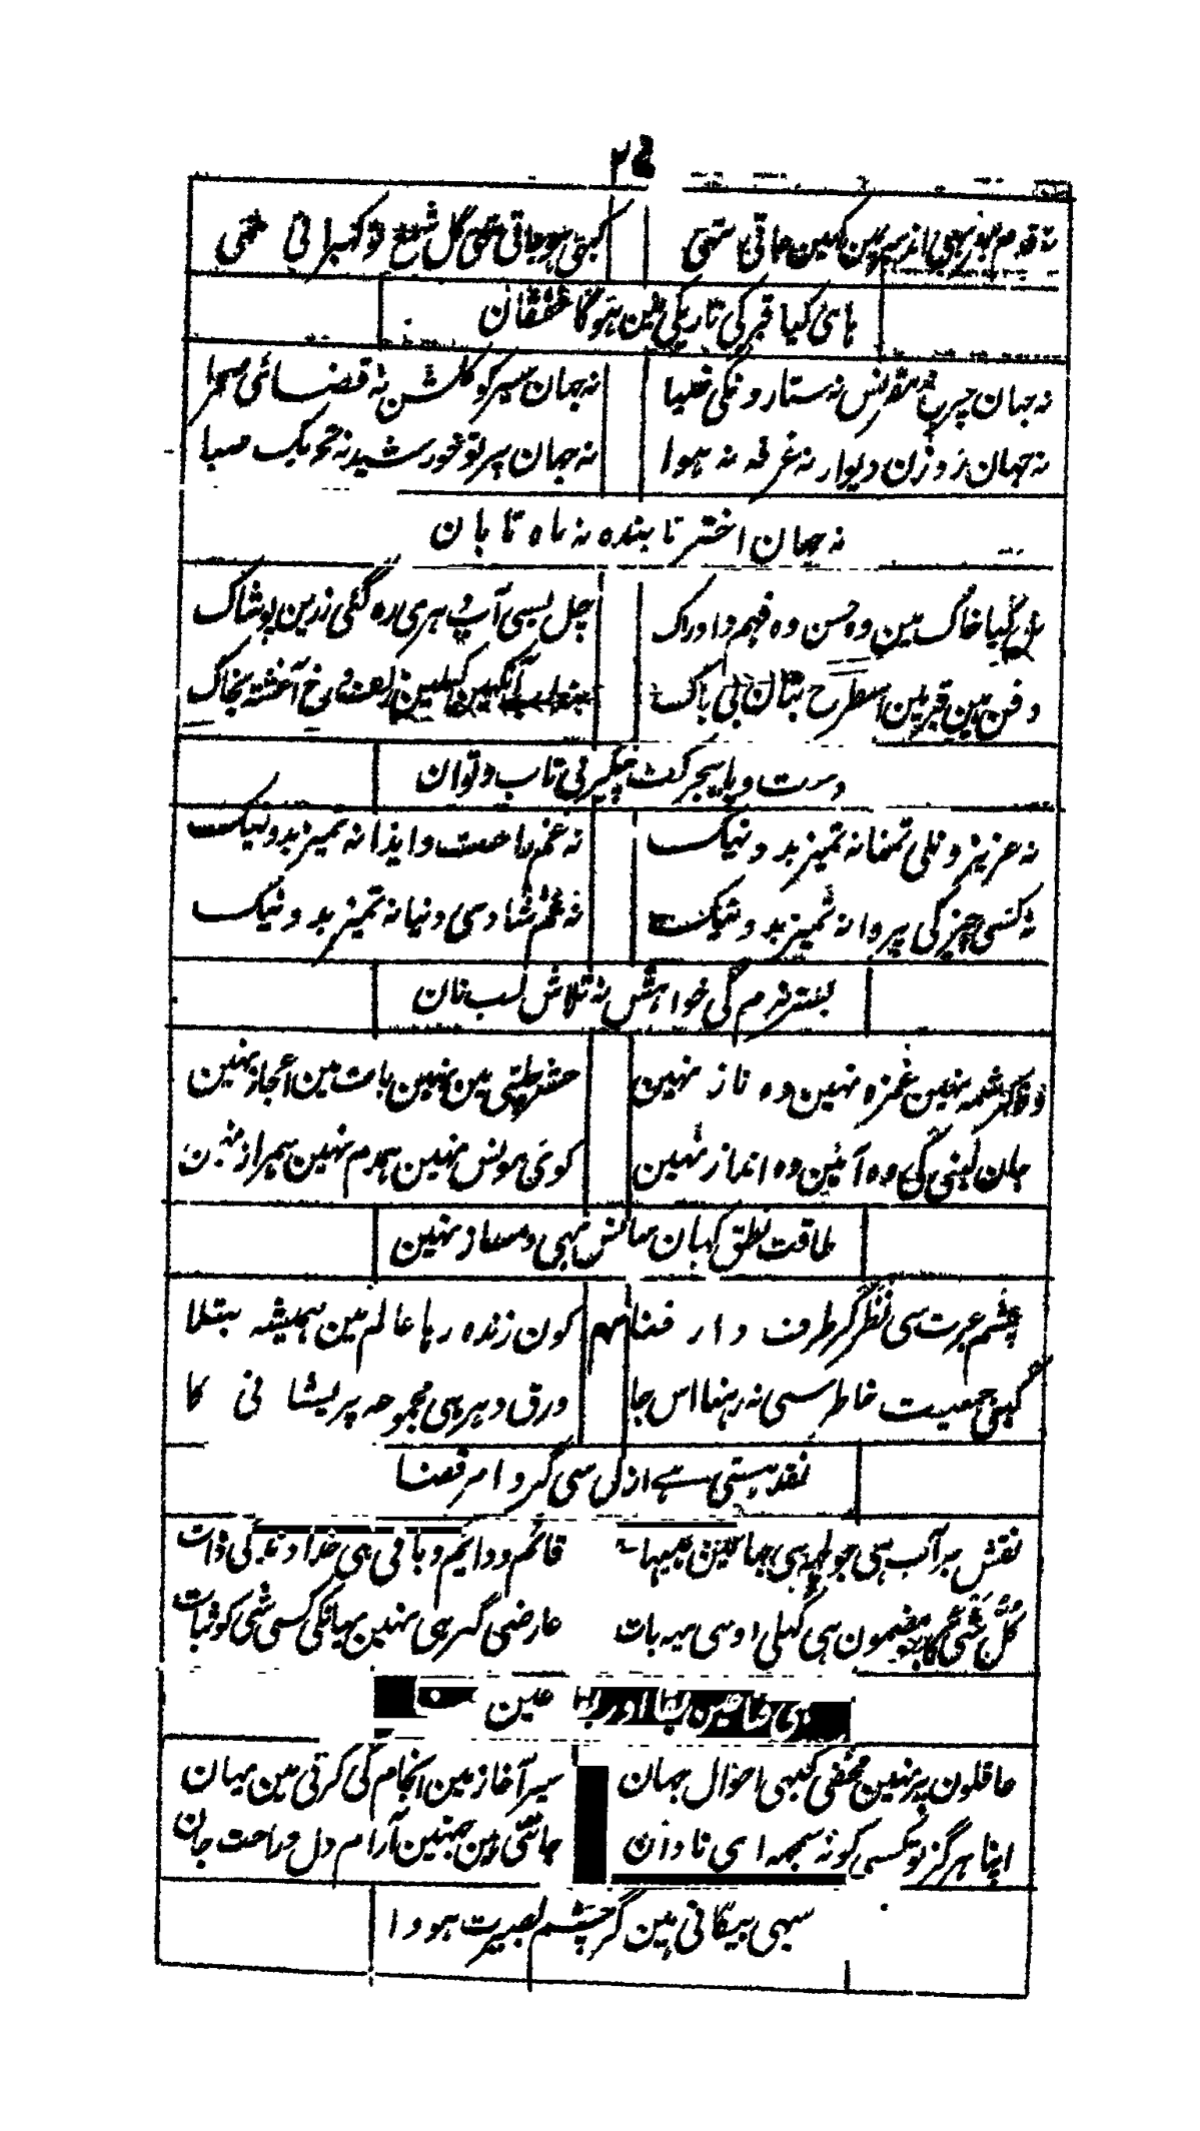 ۲۵
قدم بھر بھی اندہیرے مین کہین جاتی تھی کبھی ہو جاتی تھی گل شمع تو گھبراتی تھی
ہائی کیا قبر کی تاریکی مین ہوگا خفقان
نہ جہان چرخ مقرنس نہ ستارونکی ضیا نہ جہان سیر کو گلشن نہ قضائی صحرا
نہ جہان روزن دیوار نہ غرفہ نہ ہوا نہ جہان پرتو خورشید نہ تحریک صبا
نہ جہان اختر تابندہ نہ ماہ تابان
گیا خاک مین وہ حسن وہ فہم و ادراک چل بسی آپ دہری رہ گئی زرین پوشاک
دفن ہین قبر مین اسطرح بتان بی باک آنکہین کہلین زلف و رخ آغشتہ بخاک
دست و پا بیحرکت پیکر بی تاب و توان
نہ عزیزونکی تمنا نہ تمیز بد و نیک نہ غم راحت و ایذا نہ تمیز بد و نیک
نہ کسی چیز کی پروا نہ تمیز بد و نیک نہ غم شادی دنیا نہ تمیز بد و نیک
بستر نرم کی خواہش نہ تلاش لب نان
وہ کرشمہ نہین غمزہ نہین وہ ناز نہین حشر چلنی مین نہین بات مین اعجاز نہین
جان لینی کی وہ آئین وہ انداز نہین کوئی مونس نہین ہمدم نہین ہمراز نہین
طاقت نطق کہان سانس بہی دمساز نہین
چشم عبرت سی نظر کر طرف دار فنا کون زندہ رہا عالم مین ہمیشہ بتلا
کبہی جمعیت خاطر سی نہ رہنا اس جا ورق دہر ہی مجموعہ پریشانی کا
نقد ہستی ہے ازل سی گرو امر قضا
نقش بر آب ہی جو ہی یہان ہیہات قائم و دایم و باقی ہی خداوند کی ذات
کل شی کا مضمون ہی کہلی اوسی یہ بات عارضی گہر ہی نہین یہانکی کسی شی کو ثبات
فنا عین بقا اور بقا عین
عاقلون پر نہین مخفی کبہی احوال جہان سیر آغاز مین انجام کی کرتی ہین یہان
اپنا ہرگز تو کسی کو نہ سمجہ ای نادان جانتی ہین جنہین آرام دل و راحت جان
سبہی بیگانی ہین گر چشم بصیرت ہو وا